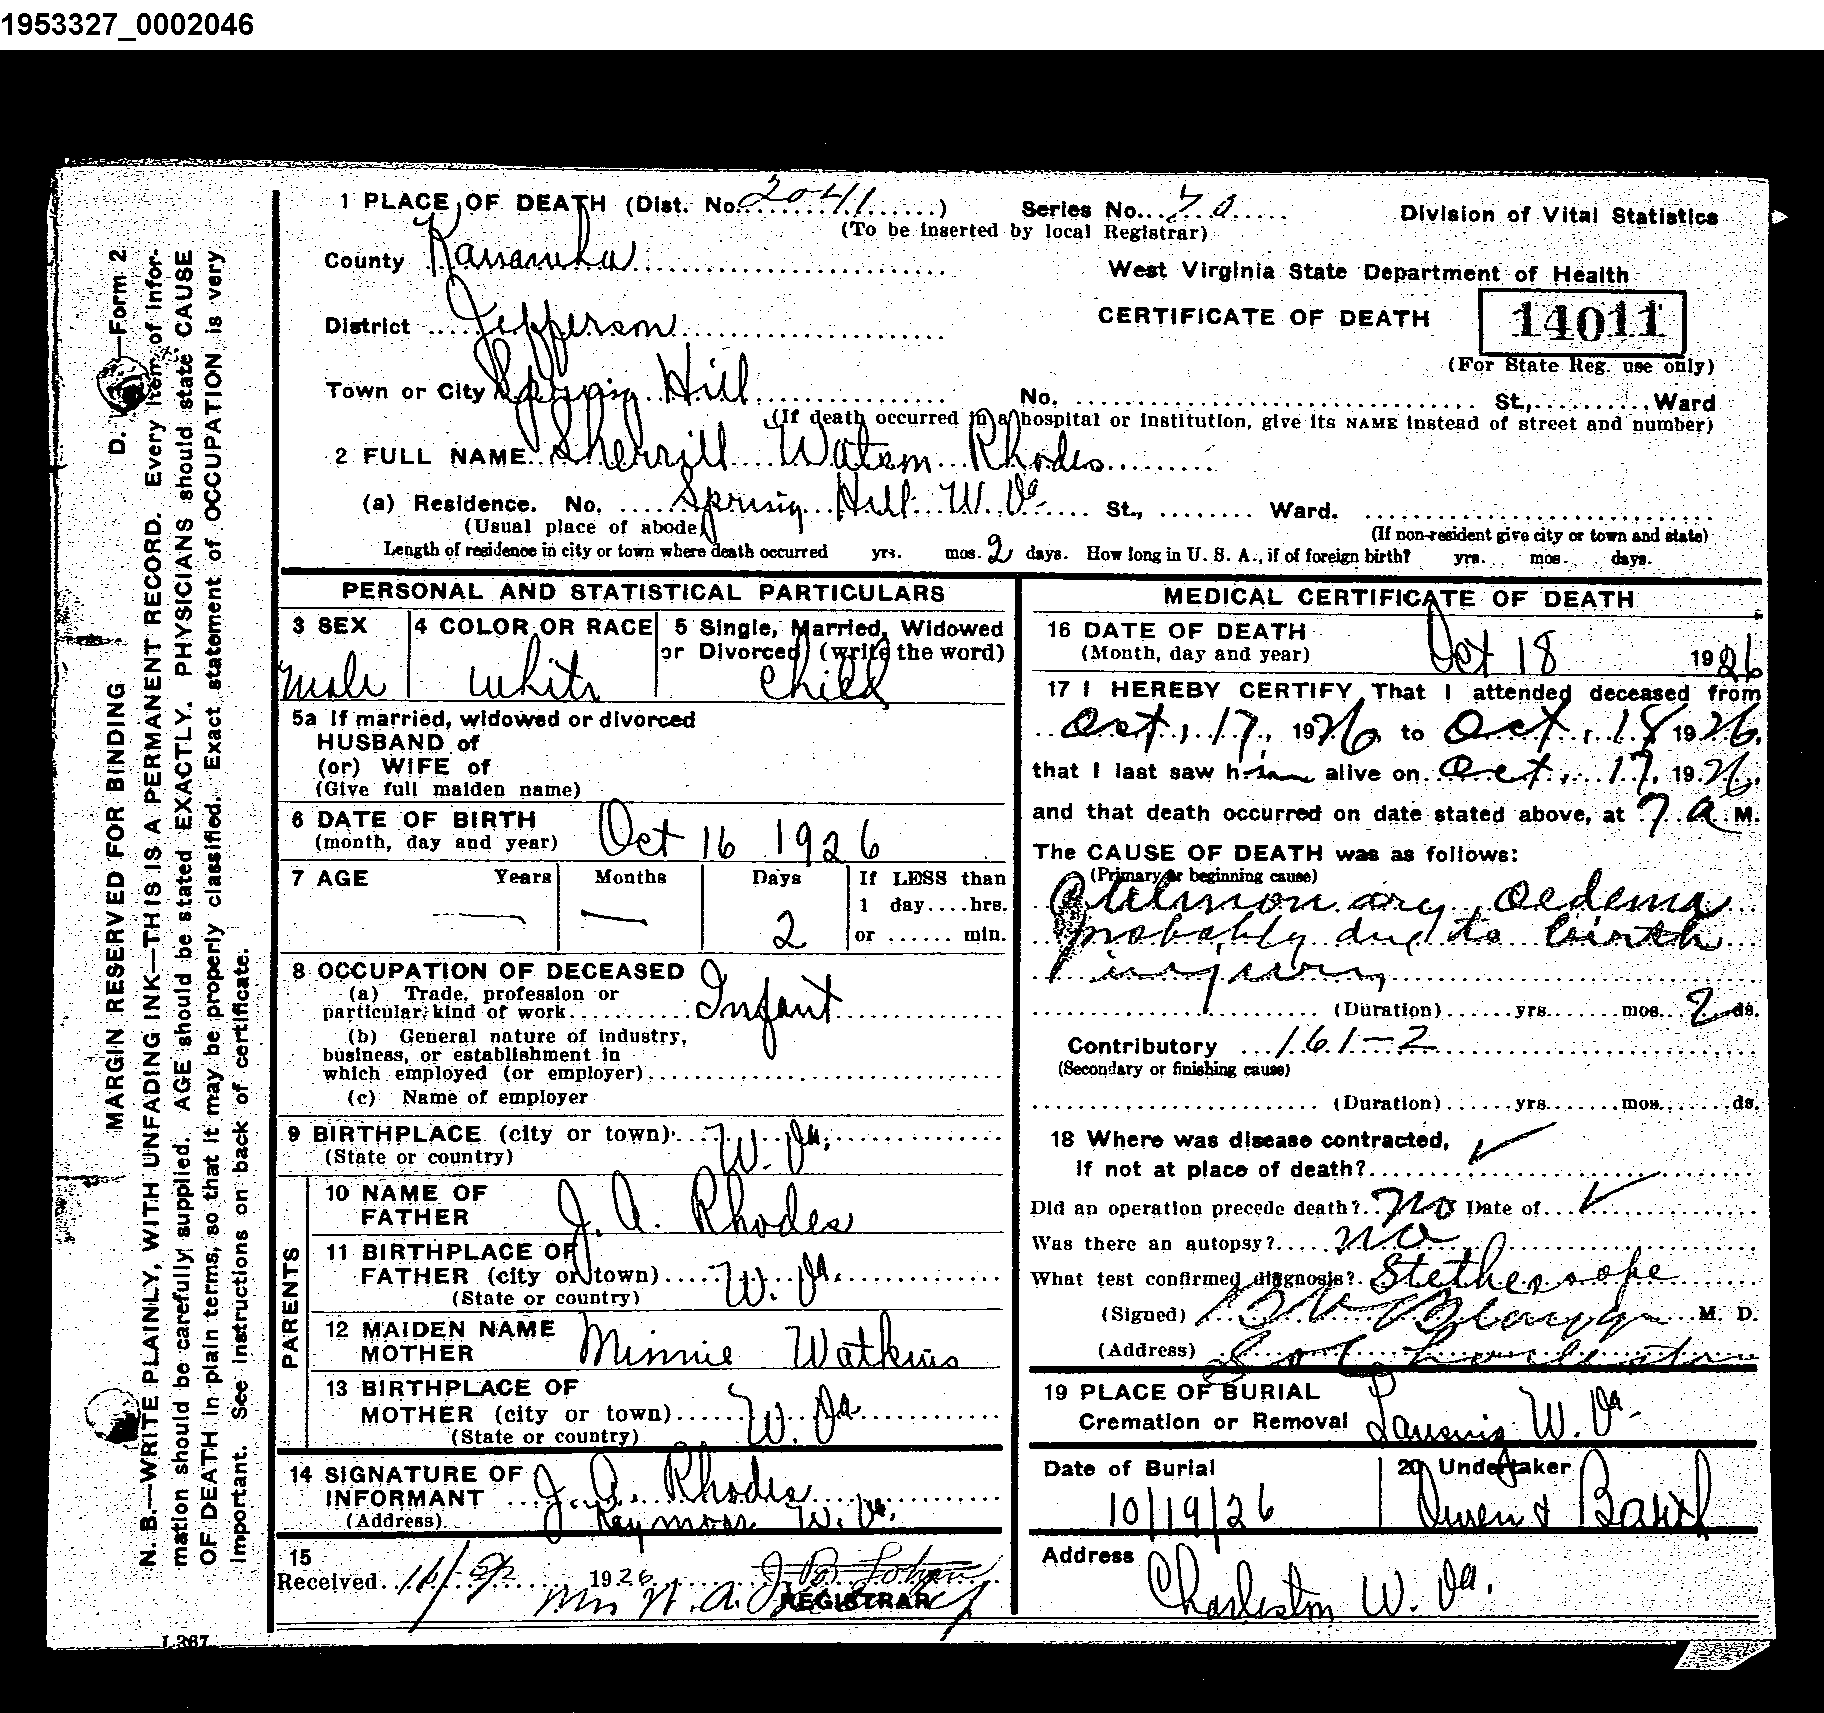 1953327_0002046
1 PLACE OF DEATH (Dist. No. 2041) Series No. 70 Division of Vital Statistics
(To be inserted by local Registrar)
County Kanawha
West Virginia State Department of Health
District Jefferson
CERTIFICATE OF DEATH 14011
(For State Reg. use only)
Town or City Spring Hill No. St., Ward
(If death occurred in a hospital or institution, give its NAME instead of street and number)
2 FULL NAME Sherrill Watson Rhodes
(a) Residence. No. Spring Hill W. Va. St., Ward.
(Usual place of abode) (If non-resident give city or town and state)
Length of residence in city or town where death occurred yrs. mos. 2 days. How long in U. S. A., if of foreign birth? yrs. mos. days.
PERSONAL AND STATISTICAL PARTICULARS
3 SEX 4 COLOR OR RACE 5 Single, Married, Widowed
or Divorced (write the word)
Male White Child
5a If married, widowed or divorced
HUSBAND of
(or) WIFE of
(Give full maiden name)
6 DATE OF BIRTH
(month, day and year) Oct 16 1926
7 AGE Years Months Days If LESS than
1 day....hrs.
2 or ...... min.
8 OCCUPATION OF DECEASED
(a) Trade, profession or
particular kind of work Infant
(b) General nature of industry,
business, or establishment in
which employed (or employer)
(c) Name of employer
9 BIRTHPLACE (city or town) W. Va.
(State or country)
PARENTS
10 NAME OF
FATHER J. A. Rhodes
11 BIRTHPLACE OF
FATHER (city or town) W. Va.
(State or country)
12 MAIDEN NAME
MOTHER Minnie Watkins
13 BIRTHPLACE OF
MOTHER (city or town) W. Va
(State or country)
14 SIGNATURE OF
INFORMANT J. A. Rhodes
(Address) W. Va.
15
Received 1926
Mrs W. A.
REGISTRAR
MEDICAL CERTIFICATE OF DEATH
16 DATE OF DEATH
(Month, day and year) Oct 18 1926
17 I HEREBY CERTIFY That I attended deceased from
Oct, 17, 1926, to Oct, 18 1926,
that I last saw him alive on Oct, 17, 1926,
and that death occurred on date stated above, at 7 a M.
The CAUSE OF DEATH was as follows:
(Primary or beginning cause)
Pulmonary oedema
probably due to birth
injury
(Duration) yrs. mos. 2 ds.
Contributory 161-2
(Secondary or finishing cause)
(Duration) yrs. mos. ds.
18 Where was disease contracted,
if not at place of death?
Did an operation precede death? No Date of
Was there an autopsy? no
What test confirmed diagnosis? Stethoscope
(Signed) M. D.
(Address) So Charleston
19 PLACE OF BURIAL
Cremation or Removal W. Va.
Date of Burial 20 Undertaker
10/19/26 Owen & Barth
Address
Charleston W. Va.
D. —Form 2
MARGIN RESERVED FOR BINDING
N. B.—WRITE PLAINLY, WITH UNFADING INK—THIS IS A PERMANENT RECORD. Every item of infor-
mation should be carefully supplied. AGE should be stated EXACTLY. PHYSICIANS should state CAUSE
OF DEATH in plain terms, so that it may be properly classified. Exact statement of OCCUPATION is very
important. See instructions on back of certificate.
L 367